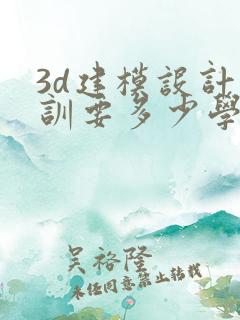 3d建模設計
訓要多少學
吴裕隆
未经同意禁止转载